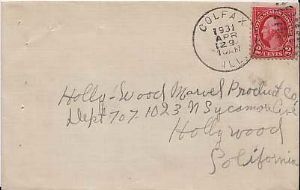 COLFAX
1931
APR
29
ILL.
2 CENTS 2
Holly-Wood Marvel Product Co,
Dept 707 1023 N Sycamore Ave
Hollywood
California